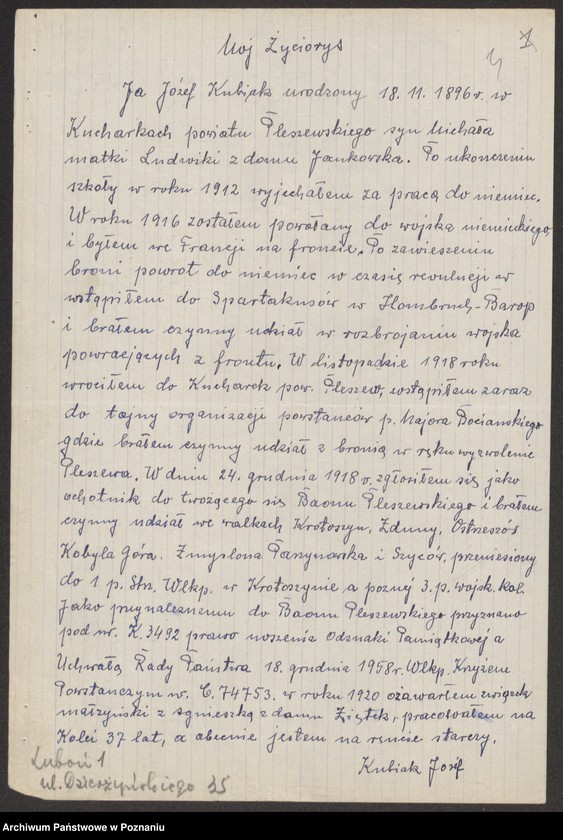 1
Mój Życiorys
Ja Józef Kubiak urodzony 18. 11. 1896 r. w
Kucharkach powiatu Pleszewskiego syn Michała
matki Ludwiki z domu Jankowska. Po ukończeniu
szkoły w roku 1912 wyjechałem za pracą do niemiec.
W roku 1916 zostałem powołany do wojska niemieckiego,
i byłem we Francji na froncie. Po zawieszeniu
broni powrót do niemiec w czasie rewulucji w
wstąpiłem do Spartakusów w Hombruch-Barop
i brałem czynny udział w rozbrojaniu wojska
powracejących z frontu. W listopadzie 1918 roku
wrociłem do Kucharek pow. Pleszew, wstąpiłem zaraz
do tajny organizacji powstańców p. Majora Bocianskiego
gdzie brałem czynny udział z bronią w ręku wyzwolenie
Pleszewa. W dniu 24. grudnia 1918 r. zgłosiłem się jako
ochotnik do tworzącego się Baonu Pleszewskiego i brałem
czynny udział we walkach Krotoszyn, Zduny, Ostrzeszów
Kobyla Góra. Zmyslona Parzynowska i Syców, przeniesiony
do 1 p. Strz. Wlkp. w Krotoszynie a poznej 3. p. wojsk. kol.
Jako przynaleznemu do Baonu Pleszewskiego przyznano
pod nr. K. 3492 prawo noszenia Odznaki Pamiątkowej a
Uchwałą Rady Państwa 18. grudnia 1958 r. Wlkp. Krzyżem
Powstańczym nr. C. 74753. w roku 1920 ozawarłem związek
małżyński z Agnieszką z domu Ziętek, pracowałem na
Kolei 37 lat, a obecnie jestem na rencie starczy.
Kubiak Józef
Luboń 1
ul. Dzierżyńskiego 35
Archiwum Państwowe w Poznaniu